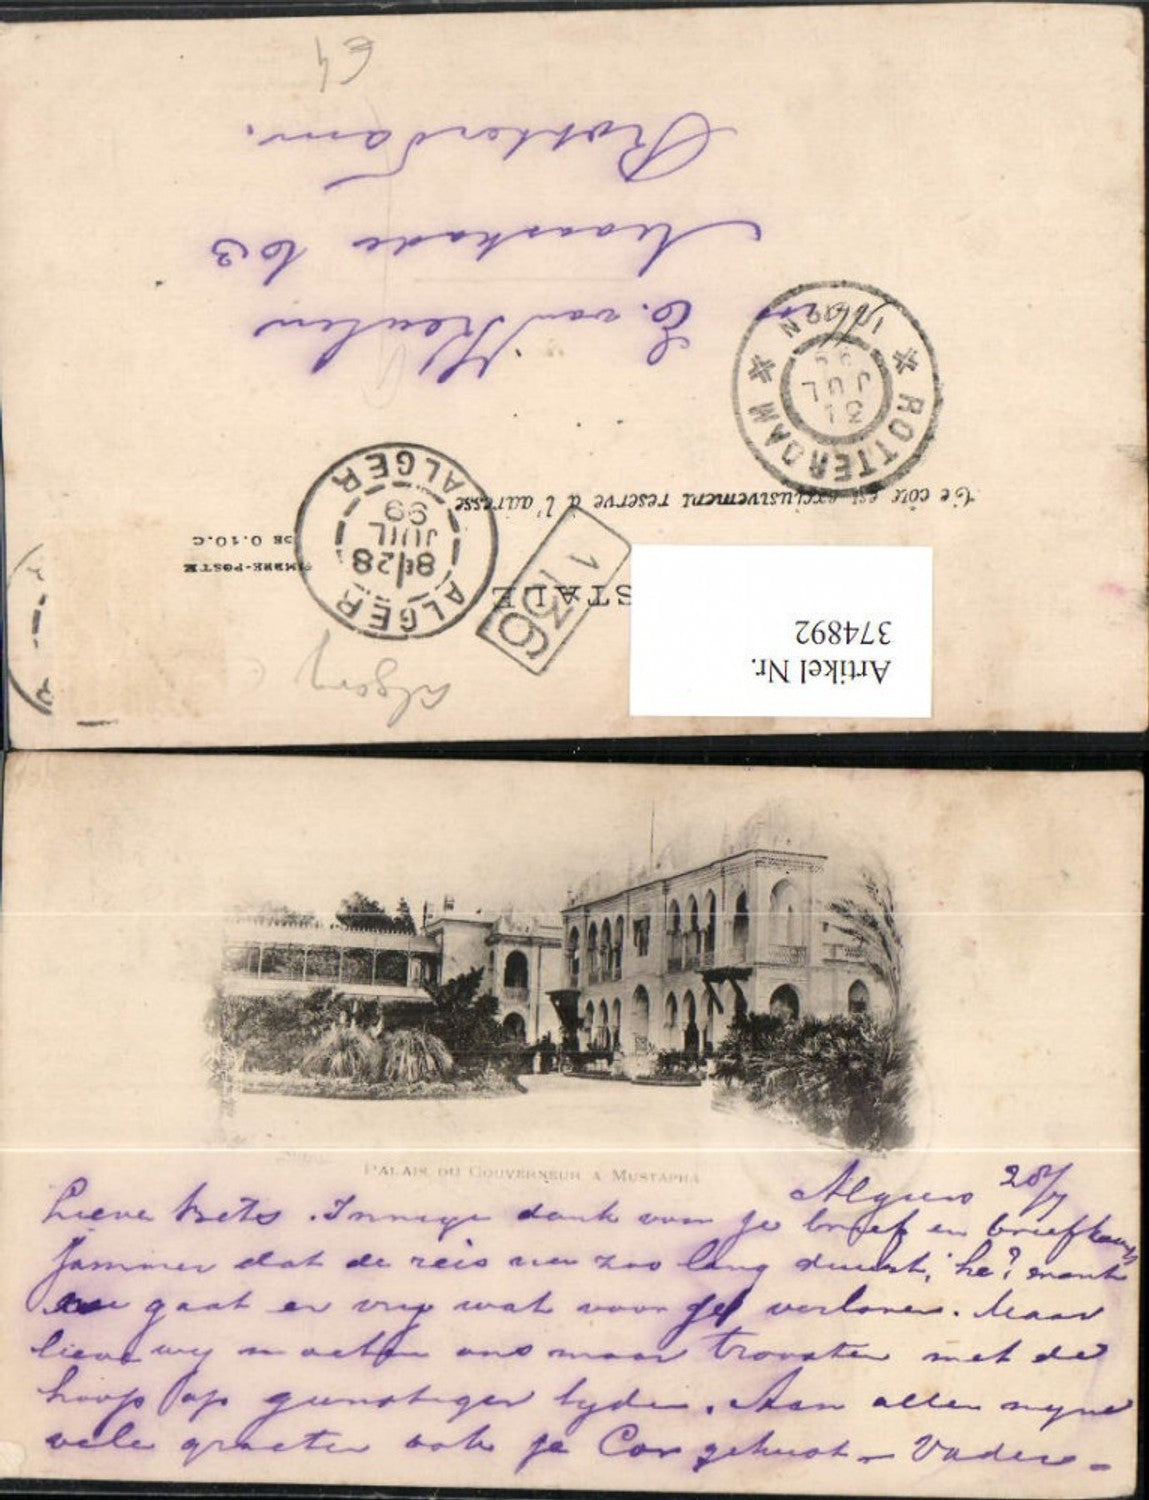 Artikel Nr.
374892
STALE
136
TIMBRE-POSTE
DE 0.10.C
Ce côté est exclusivement réservé à l'adresse
ALGER
8E/28
JUIL
99
ALGER
ROTTERDAM
31
JUL
99
E. van Keulen
Maaskade 103
Rotterdam.
PALAIS DU GOUVERNEUR A MUSTAPHA
Algiers 28/7
Lieve Bets. Innige dank voor je brief en briefkaart
jammer dat de reis nu zoo lang duurt, he? want
nu gaat er vrij wat voor je verloren. Maar
lieve wij moeten ons maar troosten met de
hoop op gunstiger tijden. Aan allen mijne
vele groeten ook je Cor gekust – Vader –